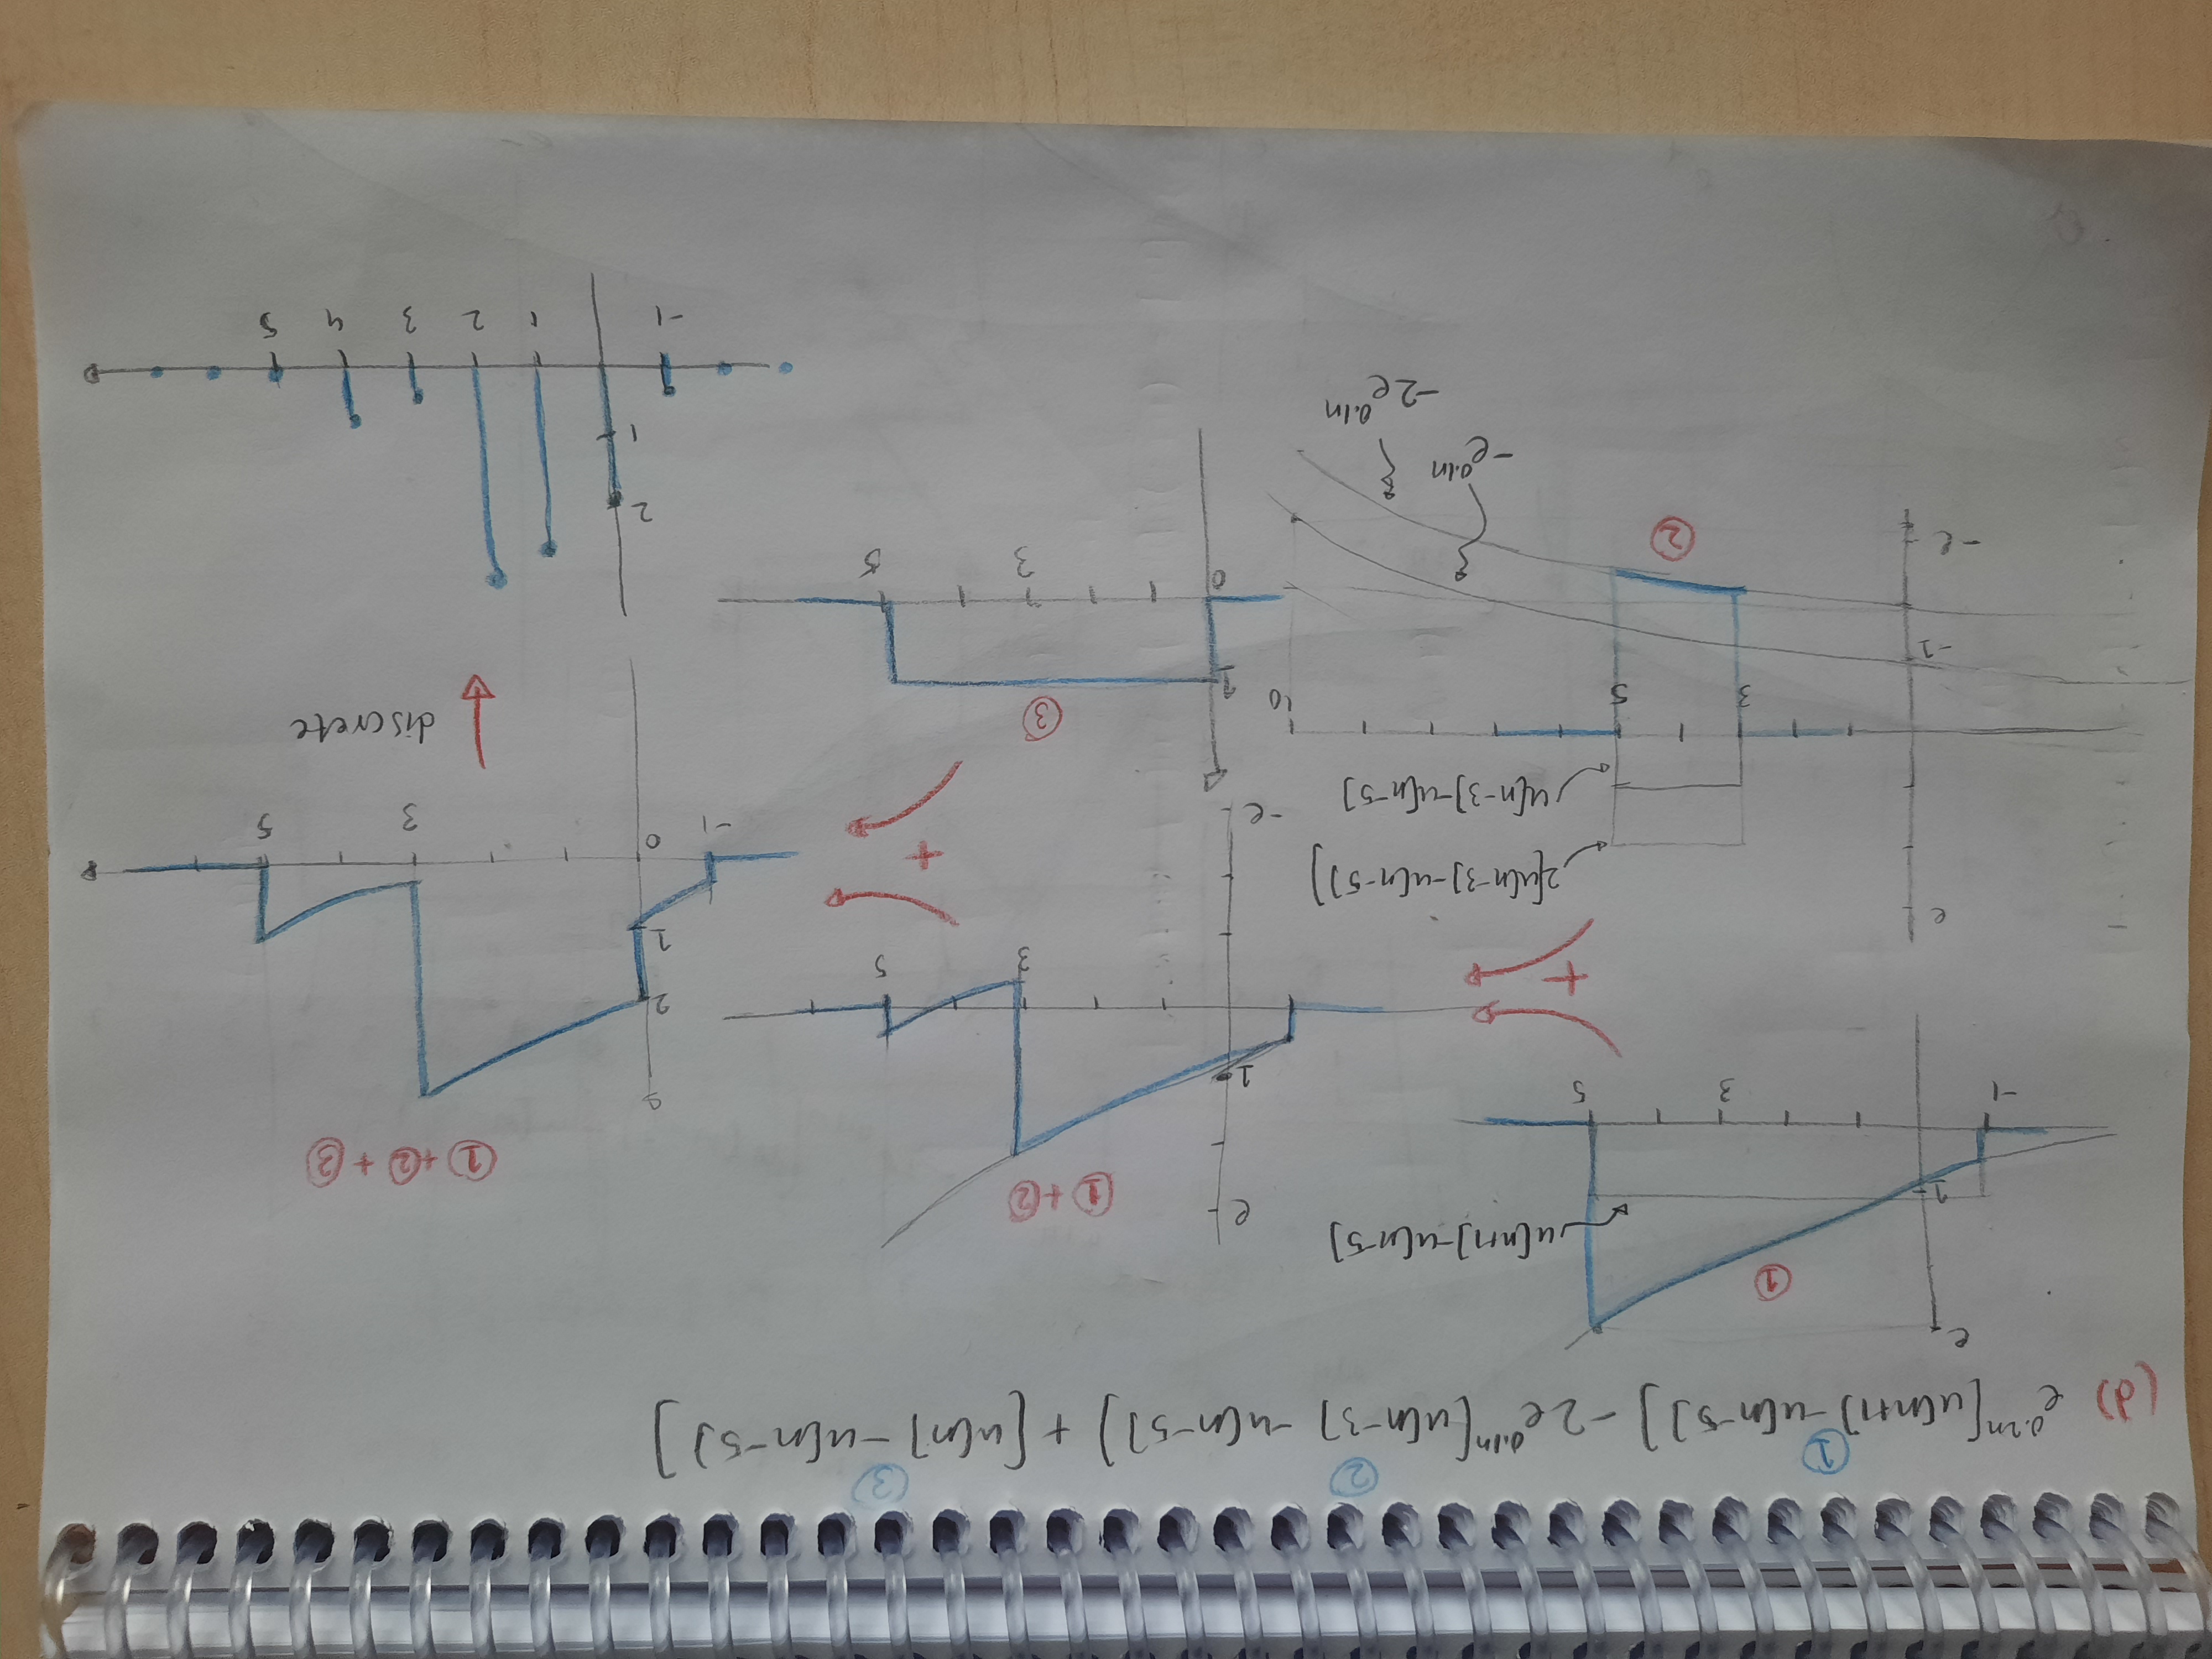 (d) e^{0.2n}[u[n+1]-u[n-5]] - 2e^{0.1n}[u[n-3] - u[n-5]] + [u[n] - u[n-5]]
① ② ③
e
1
①
u[n+1]-u[n-5]
-1 3 5
+
e
2[u[n-3]-u[n-5]]
u[n-3]-u[n-5]
3 5 10
-1
-e
②
-e^{0.1n}
-2e^{0.1n}
e
1
①+②
3 5
-e
+
③
1
0 3 5
①+②+③
2
1
-1 0 3 5
discrete
2
1
-1 1 2 3 4 5